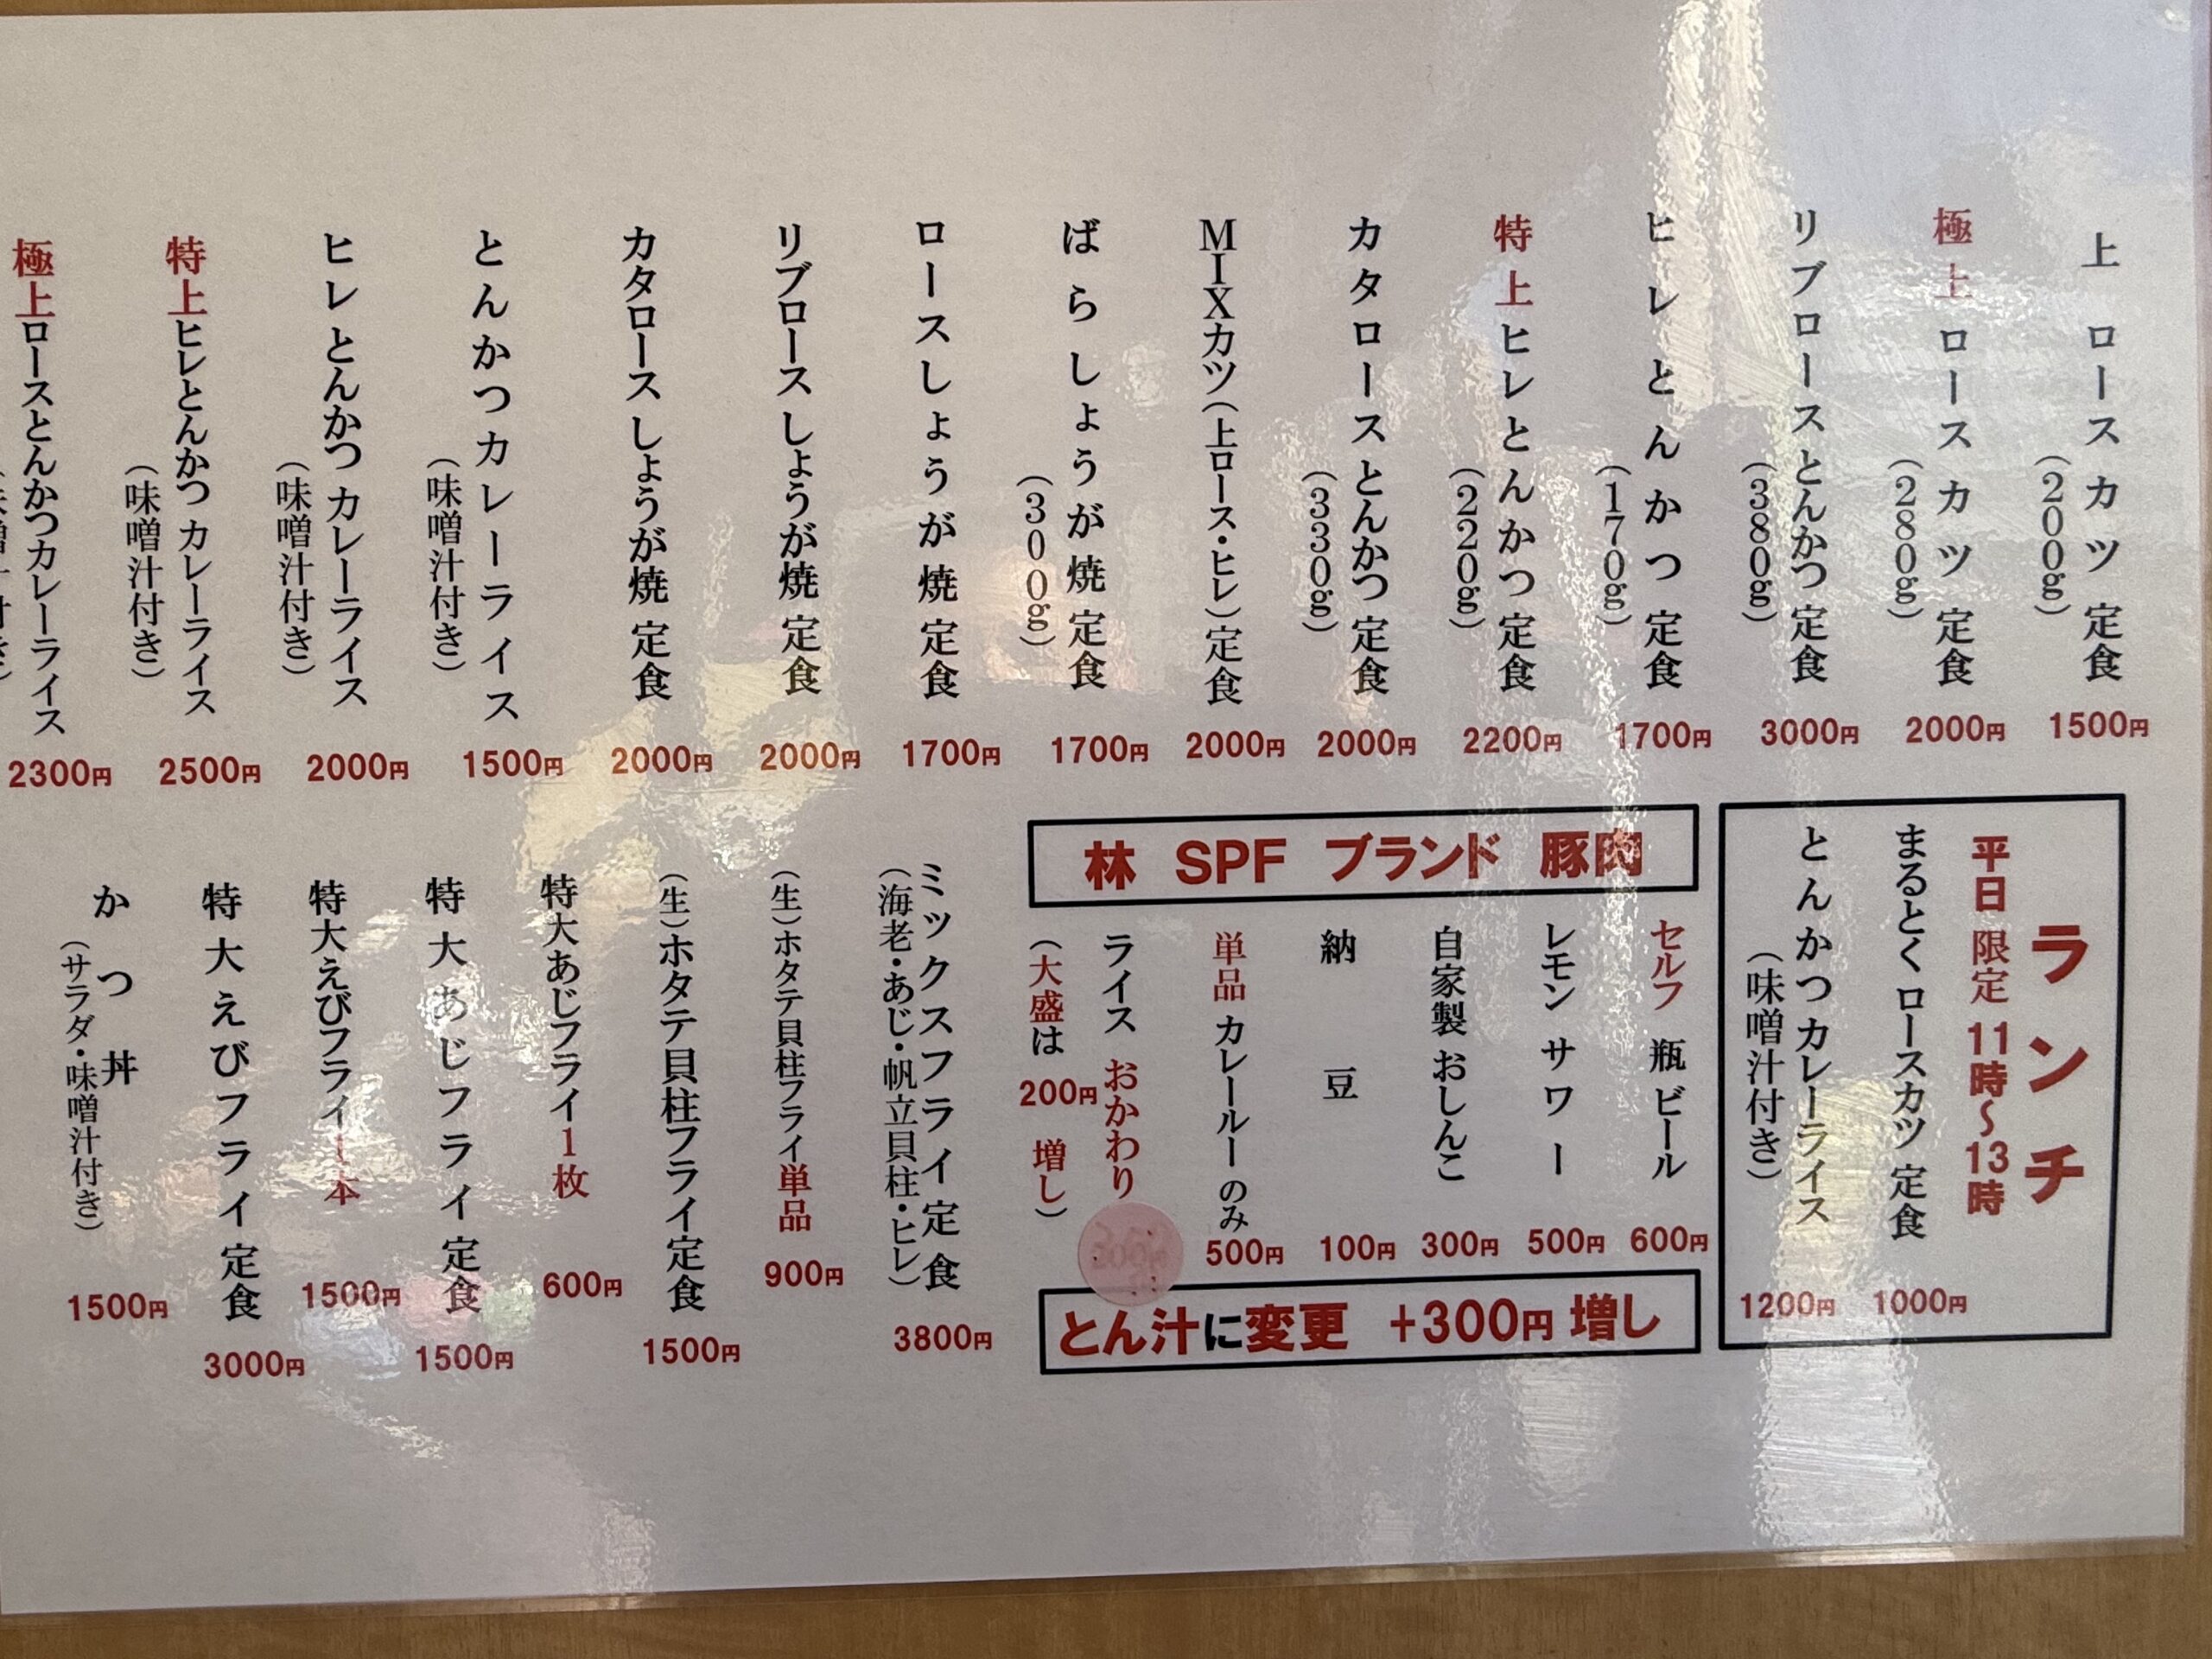 上 ロースカツ 定食
（200g）
1500円
極上 ロースカツ 定食
（280g）
2000円
リブロースとんかつ 定食
（380g）
3000円
ヒレとんかつ 定食
（170g）
1700円
特上ヒレとんかつ 定食
（220g）
2200円
カタロースとんかつ 定食
（330g）
2000円
MIXカツ（上ロース・ヒレ）定食
2000円
ばらしょうが焼 定食
（300g）
1700円
ロースしょうが焼 定食
1700円
リブロース しょうが焼 定食
2000円
カタロース しょうが焼 定食
2000円
とんかつカレーライス
（味噌汁付き）
1500円
ヒレとんかつ カレーライス
（味噌汁付き）
2000円
特上ヒレとんかつ カレーライス
（味噌汁付き）
2500円
極上ロースとんかつカレーライス
2300円
ランチ
平日 限定 11時～13時
まるとく ロースカツ 定食
1000円
とんかつカレーライス
（味噌汁付き）
1200円
林 SPF ブランド 豚肉
セルフ 瓶 ビール
600円
レモン サワー
500円
自家製 おしんこ
300円
納 豆
100円
単品 カレールーのみ
500円
ライス おかわり
（大盛は 200円 増し）
とん汁に変更 +300円 増し
ミックスフライ 定食
（海老・あじ・帆立貝柱・ヒレ）
3800円
（生）ホタテ貝柱フライ単品
900円
（生）ホタテ貝柱フライ定食
1500円
特大あじフライ1枚
600円
特大あじフライ 定食
1500円
特大えびフライ1本
1500円
特大えびフライ 定食
3000円
かつ丼
（サラダ・味噌汁付き）
1500円